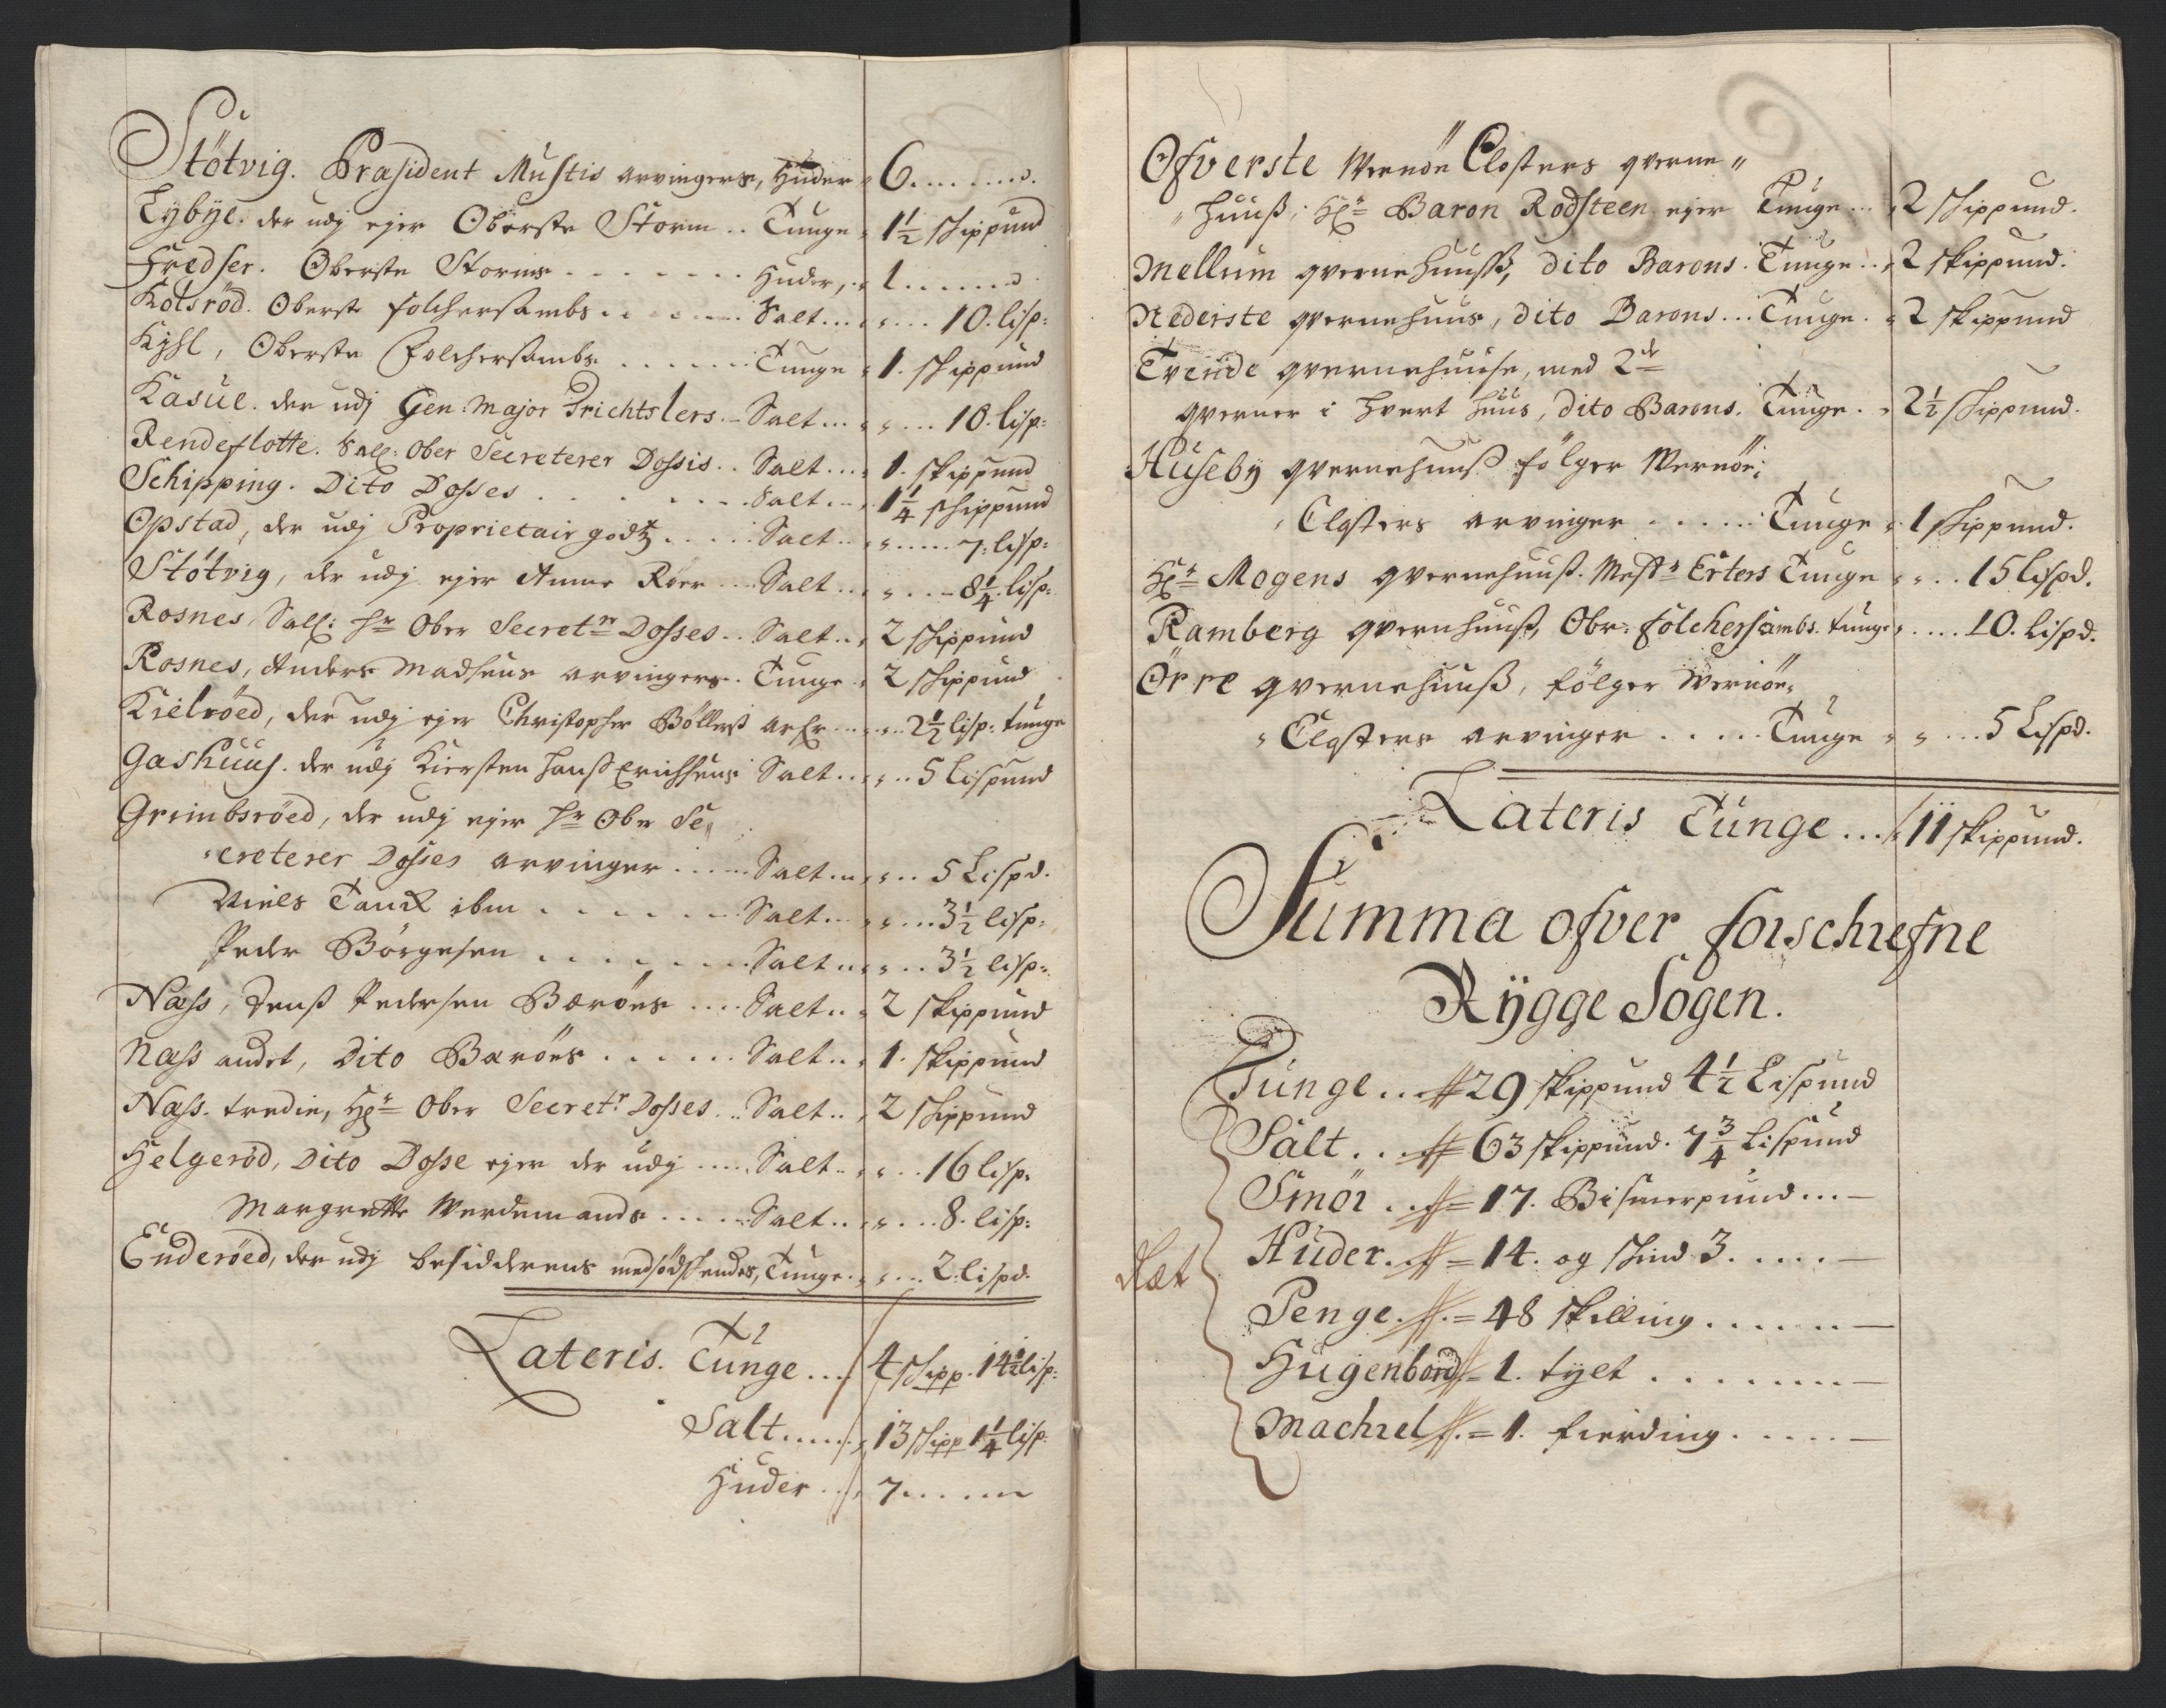 Stötvig. Præsident Mustis arvingers, Huder „ 6........
Lybye. der udj ejer Oberste Storm .. Tunge „ 1½ schippund
Fredser. Oberste Storms ........ Huder, „ 1.......
Kolsröd. Oberst Folchersambs ....... Salt... „ .... 10. lisp:
Kihl, Oberste Folchersambs ....... Tunge „ 1. schippund
Kasue. der udj Gen: Major Trichtslers. - Salt... „ ... 10. lisp:
Rendeflotte. Sal: Ober Secreterer Dossis .. Salt.... 1. skippund
Schipping. Dito Dosses ........ Salt... 1¼ schippund
Opstad, der udj Proprietair godtz ..... Salt... „ ..... 7. lisp:
Stötvig, der udj ejer Anne Röer ... Salt... „ ... 8¼ lisp:
Rosnes, Sal: Hr Ober Secretr Dosses .. Salt .. „ 2 schippund
Rosnes, Anders Madsens arvingers. Tunge „ 2 schippund
Kielröed, der udj ejer Christopher Böllerss arfr ...... 2½ lisp: tunge
Gashuus. der udj Kiersten Hanss Erichsens Salt... „ .. 5 lispund
Grimbsröed, der udj ejer Hr Ober Se„
„creterer Dosses arvinger ...... Salt... „ .. 5 Lispd.
Niels Tanck ibm ........ Salt... „ ... 3½ lisp:
Peder Börgesen ........ Salt... „ .. 3½ lisp:
Næss, Jenss Pedersen Bæröes .... Salt .. „ 2 skippund
Næss andet, Dito Bæröes ...... Salt .. „ 1. skippund
Næss. tredie, Hr Ober Secretr Dosses .. Salt .. „ 2 schippund
Helgeröd, Dito Dosse ejer der udj ..... Salt .. „ .. 16 lisp:
Margrette Werdemands ...... Salt .. „ ... 8. lisp:
Enderöed, der udj besidderens medsödschendes, Tunge. „ ... 2. lispd.
Lateris. Tunge .... 4 schipp. 14½ lisp:
Salt...... 13 schipp 1¼ lisp:
Huder ... 7......
Ofverste Wernöe Closters qverne„
„huuss; Hr Baron Rodsteen ejer Tunge ... 2 schippund.
Mellum qvernehuuss, dito Barons. Tunge .. 2 skippund.
Nederste qvernehuus, dito Barons... Tunge. „ 2 skippund
Tvende qvernehuuse, med 2de
qverner i hvert huus, dito Barons. Tunge. „ 2½ schippund.
Huseby qvernehuuss fölger Wernöe;
„Closters arvinger ...... Tunge „ 1 schippund.
Hr Mogens qvernehuuss. Mestr Erters Tunge „ „ .. 15 lispd.
Ramberg qvernhuuss, Obr: Folchersambs. tunge „ .... 10. lispd.
Örre qvernehuuss, fölger Wernöe„
„Closters arvinger ..... Tunge „ „ ... 5 Lispd.
Lateris Tunge ... 11 skippund.
Summa ofver forschrefne
Rygge Sogen.
Tunge .. 29 skippund 4½ Lispund
Salt .. = 63 skippund. 7¾ Lispund
Smör .. = 17. Bismerpund ... —
Huder .. = 14. og schind 3. ..... —
Penge .. = 48 skilling ....... —
Hugenbord = 1. tylt ........ —
Machrel .. = 1. fierding ...... —